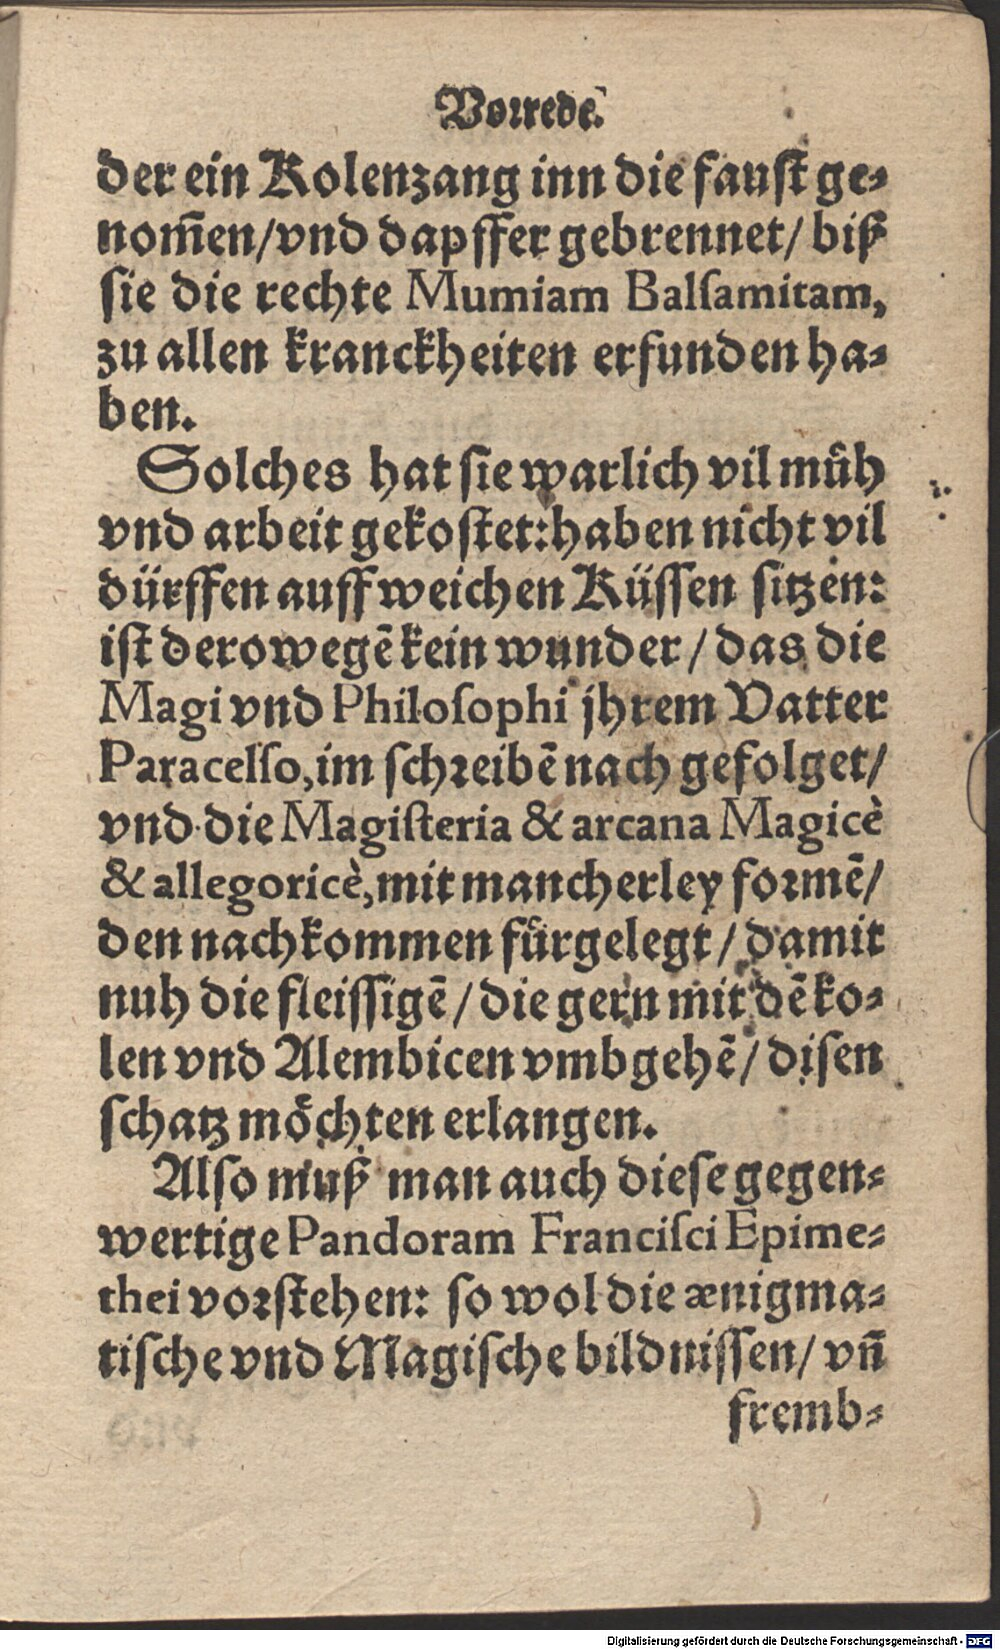 Vorrede.
der ein Kolenzang inn die faust ge-
nom̃en/vnd dapffer gebrennet/ biß
sie die rechte Mumiam Balſamitam,
zu allen kranckheiten erfunden ha-
ben.
Solches hat ſie warlich vil můh
vnd arbeit gekoſtet: haben nicht vil
dürffen auff weichen Küſſen ſitzen:
iſt derowegẽ kein wunder / das die
Magi vnd Philoſophi jhrem Vatter
Paracelſo, im ſchreibẽ nach gefolget/
vnd die Magiſteria & arcana Magicè
& allegoricè, mit mancherley formẽ/
den nachkommen fůrgelegt / damit
nuh die fleiſſigẽ / die gern mit dẽ ko-
len vnd Alembicen vmbgehẽ / diſen
ſchatz möchten erlangen.
Alſo muß man auch dieſe gegen-
wertige Pandoram Franciſci Epime-
thei vorſtehen: ſo wol die ænigma-
tiſche vnd Magiſche bildniſſen/ vñ
fremb-
Digitalisierung gefördert durch die Deutsche Forschungsgemeinschaft - DFG